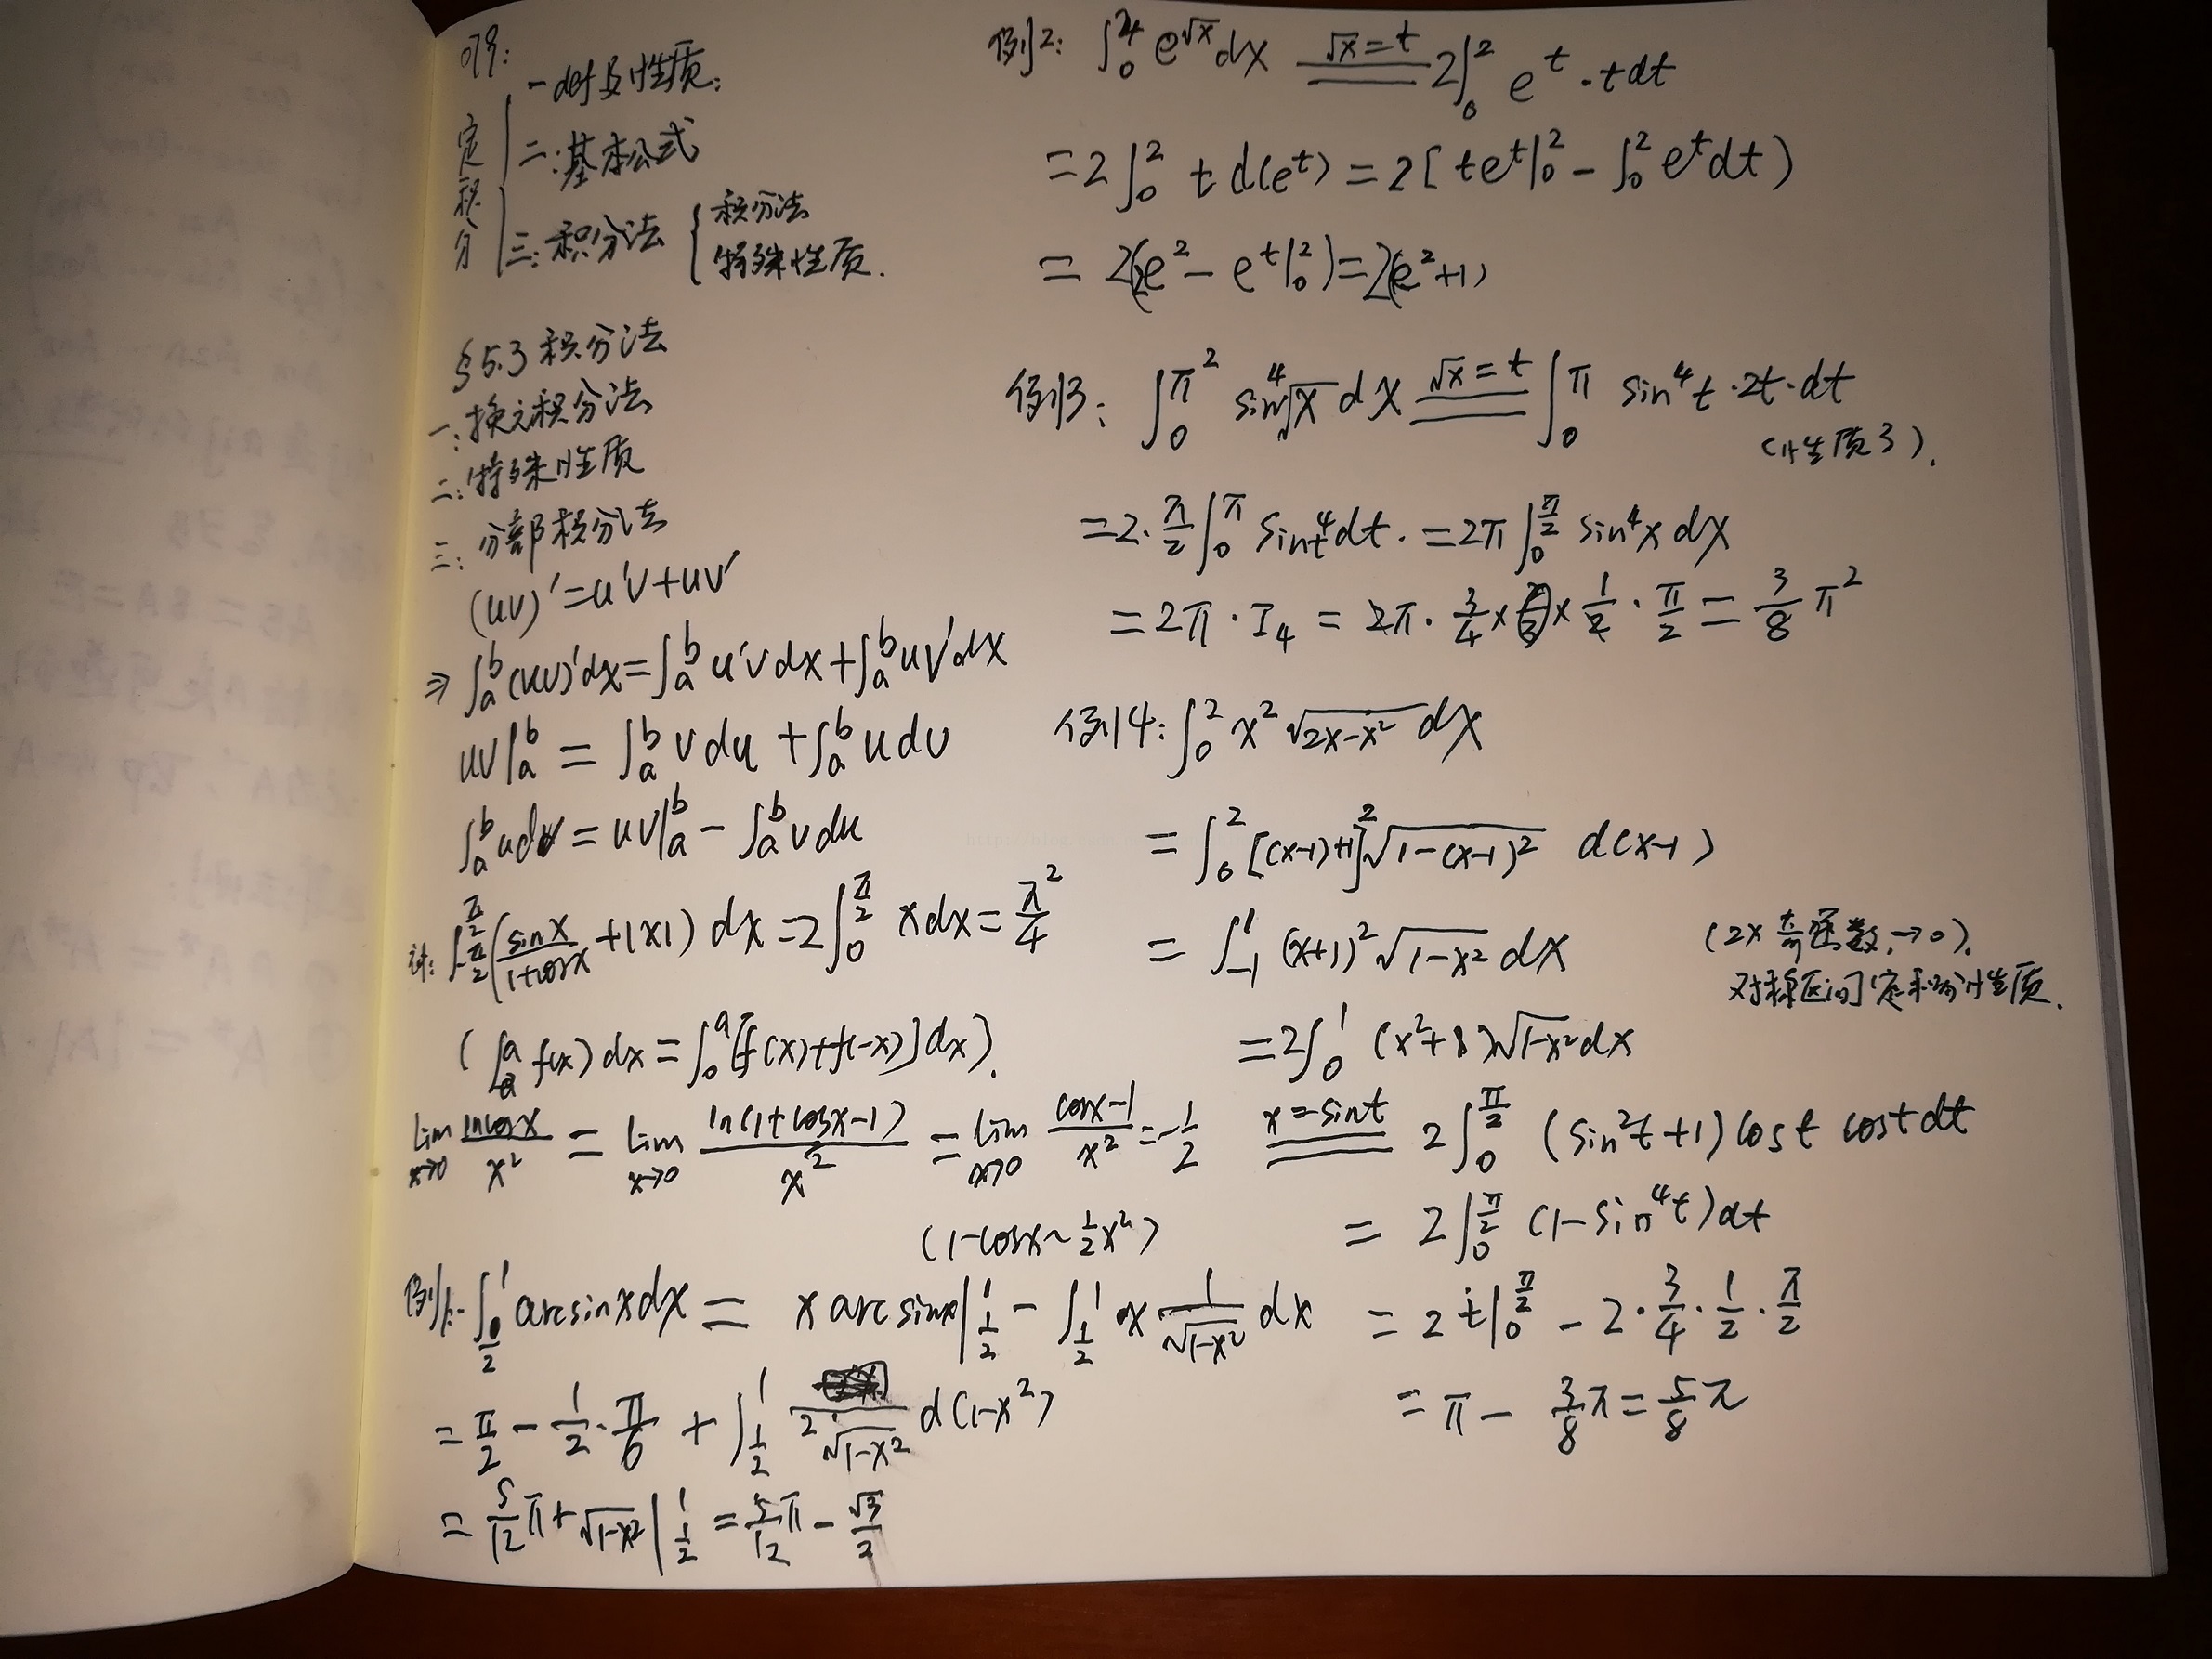 079:
定积分
一 def及性质;
二:基本公式
三:积分法 { 积分法
特殊性质.
§5.3 积分法
一:换元积分法
二:特殊性质
三:分部积分法
(uv)'=u'v+uv'
⇒ ∫_a^b (uv)'dx=∫_a^b u'v dx+∫_a^b uv'dx
uv|_a^b = ∫_a^b v du + ∫_a^b u dv
∫_a^b u dv = uv|_a^b - ∫_a^b v du
∫_{-π/2}^{π/2} (sinx/(1+cosx) + |x|) dx = 2∫_0^{π/2} x dx = π²/4
(∫_{-a}^a f(x) dx = ∫_0^a [f(x)+f(-x)]dx).
lim_{x→0} lncosx/x² = lim_{x→0} ln(1+cosx-1)/x² = lim_{x→0} (cosx-1)/x² = -1/2
(1-cosx~½x²)
例1: ∫_{1/2}^1 arcsinx dx = x arcsinx|_{1/2}^1 - ∫_{1/2}^1 x 1/√(1-x²) dx
= π/2 - 1/2·π/6 + ∫_{1/2}^1 1/(2√(1-x²)) d(1-x²)
= 5/12 π + √(1-x²) |_{1/2}^1 = 5/12 π - √3/2
例2: ∫_0^4 e^{√x} dx =(√x=t)= 2∫_0^2 e^t · t dt
= 2∫_0^2 t d(e^t) = 2[te^t|_0^2 - ∫_0^2 e^t dt)
= 2(2e² - e^t|_0^2) = 2(e²+1)
例3: ∫_0^{π²} sin⁴√x dx =(√x=t)= ∫_0^π sin⁴t·2t·dt
(性质3).
= 2·π/2 ∫_0^π sin⁴t dt. = 2π ∫_0^{π/2} sin⁴x dx
= 2π·I₄ = 2π·3/4×1/2·π/2 = 3/8 π²
例4: ∫_0^2 x²√(2x-x²) dx
= ∫_0^2 [(x-1)+1]²√(1-(x-1)²) d(x-1)
= ∫_{-1}^1 (x+1)²√(1-x²) dx (2x奇函数,→0).
对称区间定积分性质.
= 2∫_0^1 (x²+1)√(1-x²) dx
=(x=sint)= 2∫_0^{π/2} (sin²t+1)cost cost dt
= 2∫_0^{π/2} (1-sin⁴t)dt
= 2t|_0^{π/2} - 2·3/4·1/2·π/2
= π - 3/8 π = 5/8 π